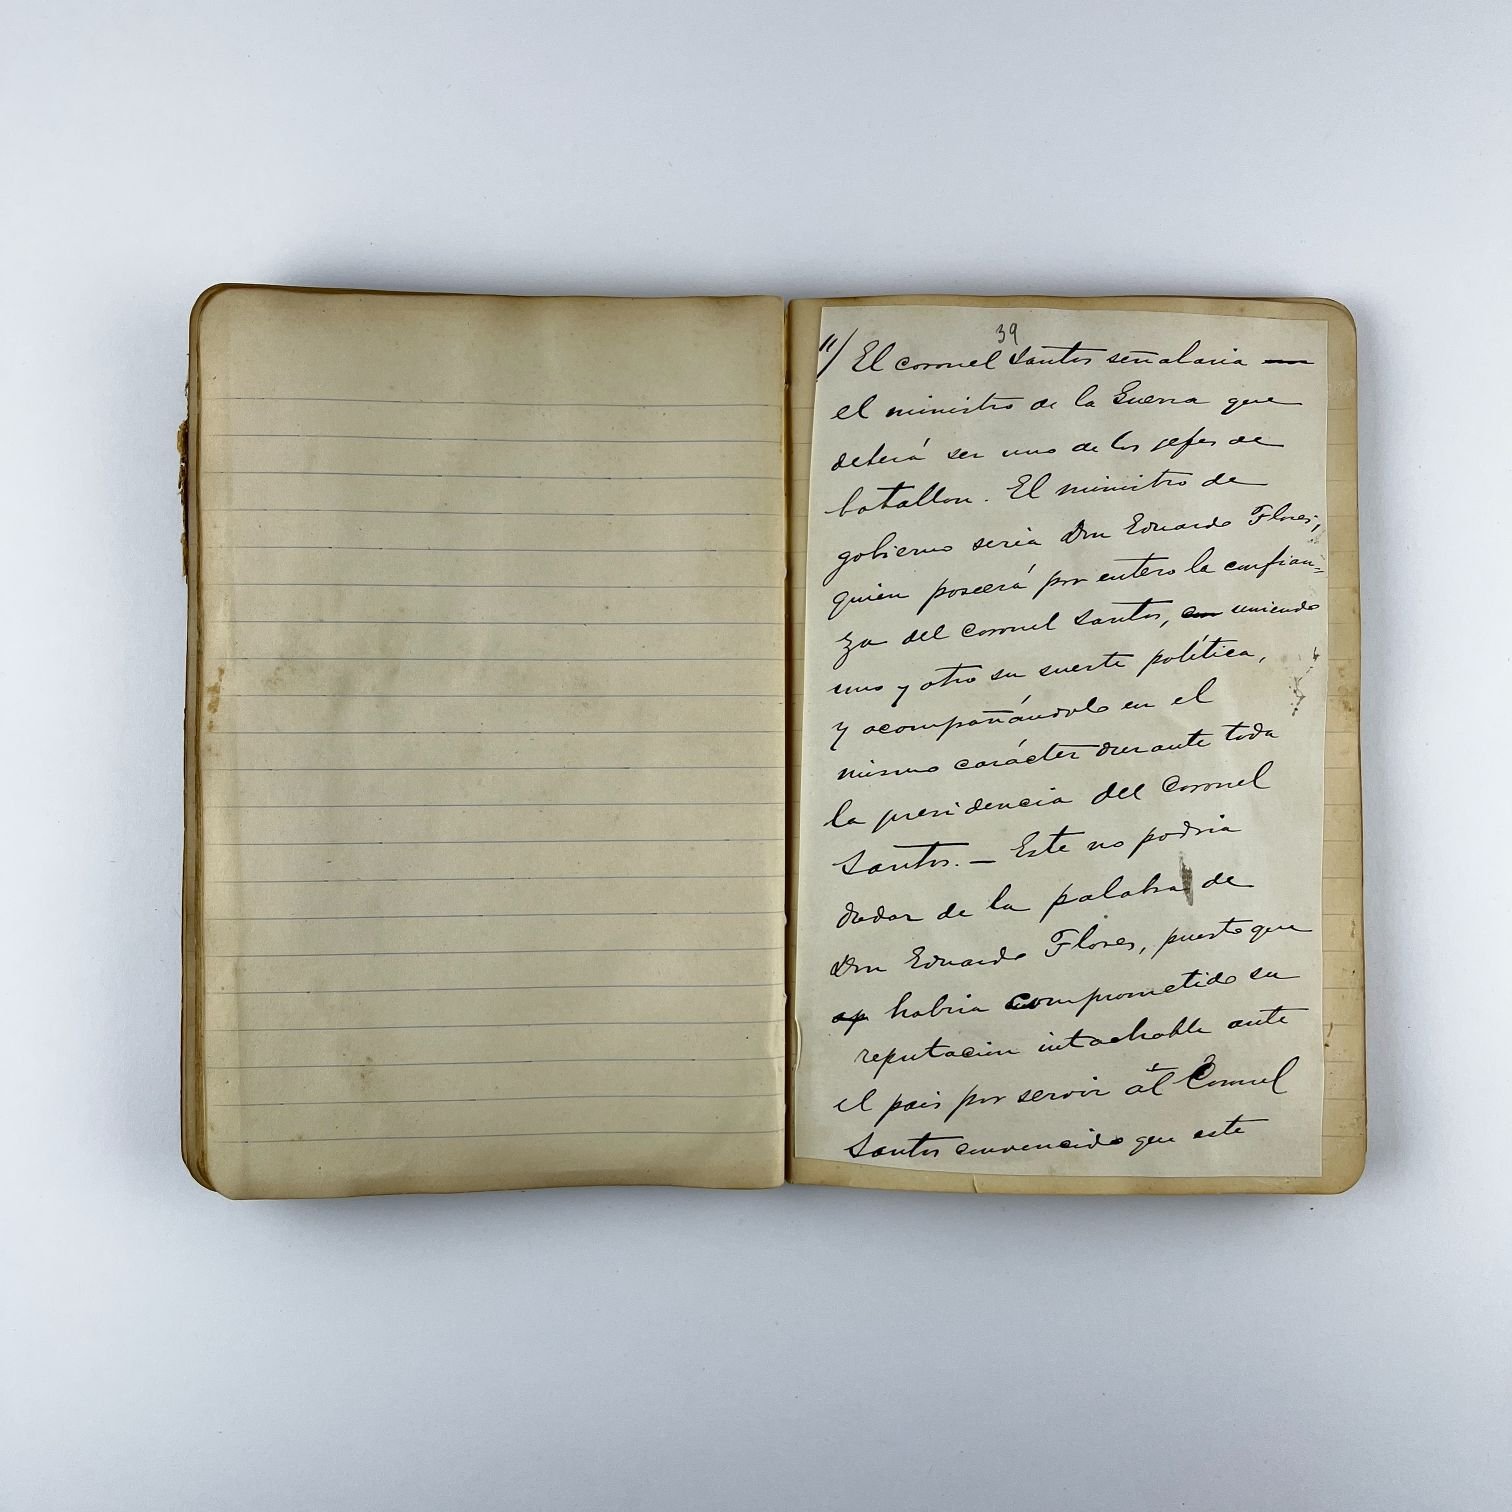 39
11/ El coronel Santos señalaria
el ministro de la Guerra que
deberá ser uno de los jefes de
batallon. El ministro de
gobierno seria Don Eduardo Flores,
quien poseerá por entero la confian=
za del coronel Santos, uniendo
uno y otro su suerte política,
y acompañándolo en el
mismo carácter durante toda
la presidencia del Coronel
Santos. — Este no podria
dudar de la palabra de
Don Eduardo Flores, puesto que
habria comprometido su
reputacion intachable ante
el pais por servir ál Coronel
Santos convencido que este